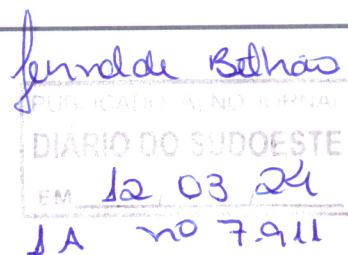 Jornal de Beltrão
PUBLICADO NO JORNAL
DIÁRIO DO SUDOESTE
EM 12 03 24
1A nº 7.911